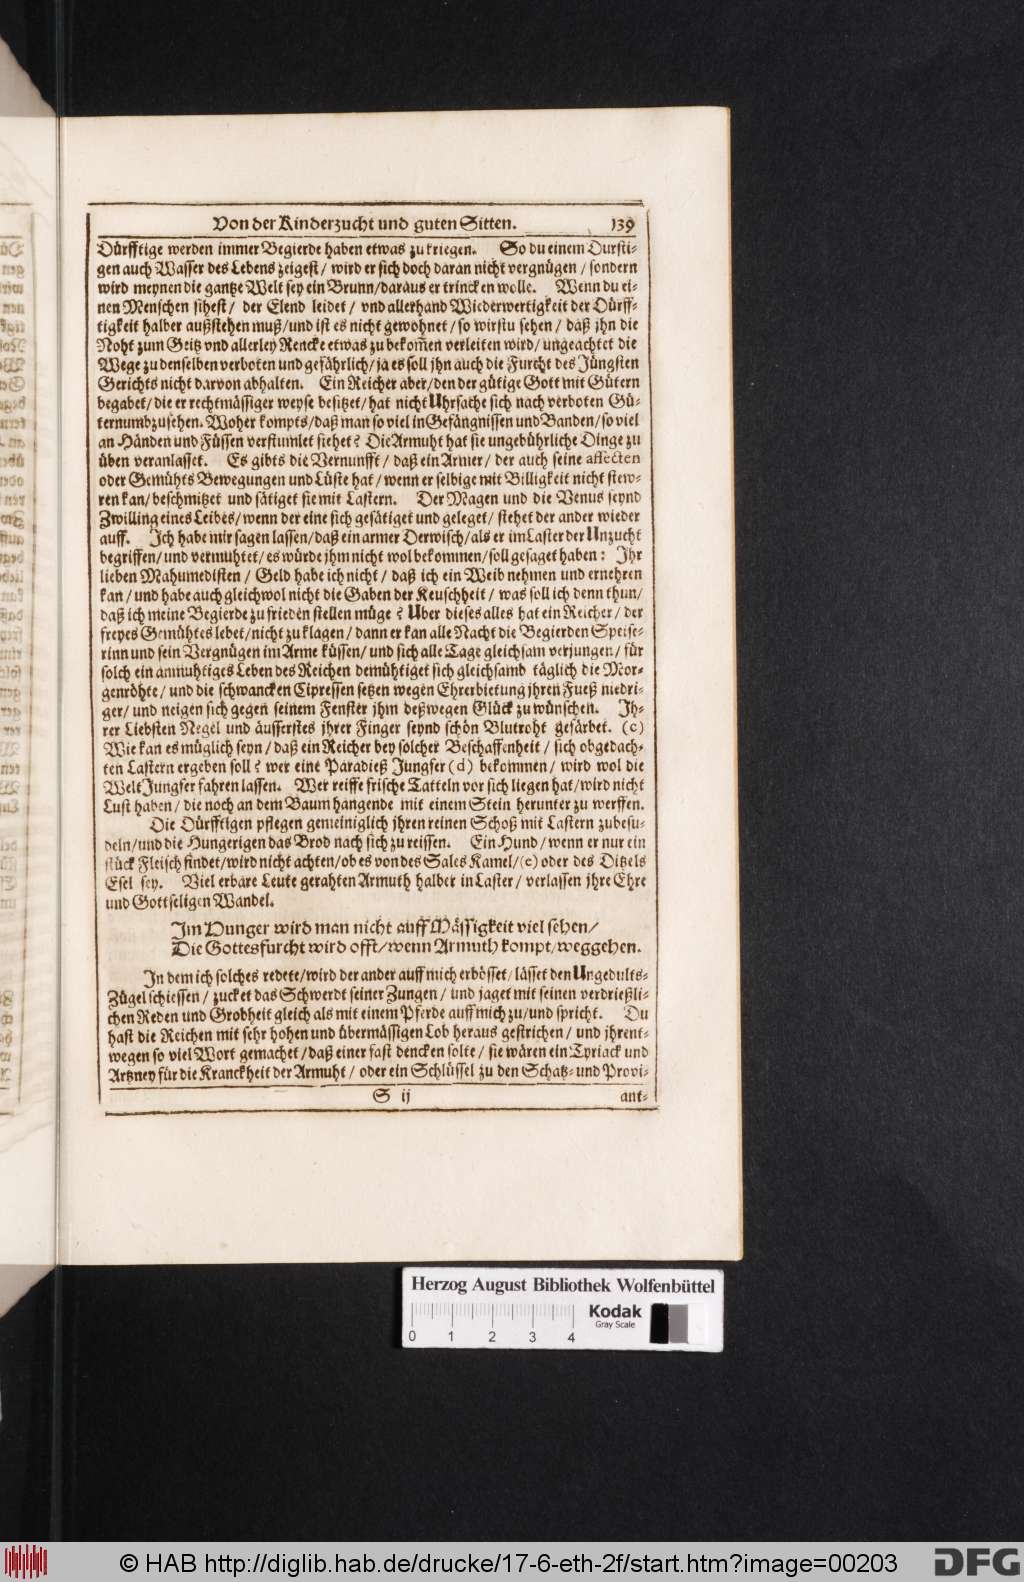 Von der Kinderzucht und guten Sitten. 139
Dürfftige werden immer Begierde haben etwas zu kriegen. So du einem Dursti-
gen auch Wasser des Lebens zeigest / wird er sich doch daran nicht vergnügen / sondern
wird meynen die gantze Welt sey ein Brunn/daraus er trincken wolle. Wenn du ei-
nen Menschen sihest / der Elend leidet / vnd allerhand Wiederwertigkeit der Dürff-
tigkeit halber außstehen muß/und ist es nicht gewohnet / so wirstu sehen / daß jhn die
Noht zum Geitz vnd allerley Rencke etwas zu bekom̃en verleiten wird / ungeachtet die
Wege zu denselben verboten und gefährlich/ja es soll jhn auch die Furcht des Jüngsten
Gerichts nicht darvon abhalten. Ein Reicher aber/den der gütige Gott mit Gütern
begabet/die er rechtmässiger weyse besitzet/hat nicht Uhrsache sich nach verboten Gü-
tern umbzusehen. Woher kompts/daß man so viel in Gefängnissen und Banden/so viel
an Händen und Füssen verstümlet siehet? Die Armuht hat sie ungebührliche Dinge zu
üben veranlasset. Es gibts die Vernunfft / daß ein Armer / der auch seine affecten
oder Gemühts Bewegungen und Lüste hat/wenn er selbige mit Billigkeit nicht stew-
ren kan/beschmitzet und sätiget sie mit Lastern. Der Magen und die Venus seynd
Zwilling eines Leibes/wenn der eine sich gesätiget und geleget/ stehet der ander wieder
auff. Ich habe mir sagen lassen/daß ein armer Derwisch/als er im Laster der Unzucht
begriffen/und vermuhtet/es würde jhm nicht wol bekommen/soll gesaget haben: Ihr
lieben Mahumedisten / Geld habe ich nicht / daß ich ein Weib nehmen und ernehren
kan/und habe auch gleichwol nicht die Gaben der Keuschheit / was soll ich denn thun/
daß ich meine Begierde zu frieden stellen müge? Uber dieses alles hat ein Reicher / der
freyes Gemühtes lebet/nicht zu klagen / dann er kan alle Nacht die Begierden Speise-
rinn und sein Vergnügen im Arme küssen/und sich alle Tage gleichsam verjungen/ für
solch ein anmuhtiges Leben des Reichen demühtiget sich gleichsamb täglich die Mor-
genröhte / und die schwancken Cipressen setzen wegen Ehrerbietung jhren Fueß niedri-
ger/ und neigen sich gegen seinem Fenster jhm deßwegen Glück zu wünschen. Ih-
rer Liebsten Negel und äusserstes jhrer Finger seynd schön Blutroht gefärbet. (c)
Wie kan es müglich seyn / daß ein Reicher bey solcher Beschaffenheit / sich obgedach-
ten Lastern ergeben soll? wer eine Paradieß Jungfer (d) bekommen / wird wol die
Welt Jungfer fahren lassen. Wer reiffe frische Tatteln vor sich liegen hat/wird nicht
Lust haben / die noch an dem Baum hangende mit einem Stein herunter zu werffen.
Die Dürfftigen pflegen gemeiniglich jhren reinen Schoß mit Lastern zubesu-
deln/und die Hungerigen das Brod nach sich zu reissen. Ein Hund / wenn er nur ein
stück Fleisch findet/wird nicht achten/ob es von des Sales Kamel/(e) oder des Ditzels
Esel sey. Viel erbare Leute gerahten Armuth halber in Laster / verlassen jhre Ehre
und Gottseligen Wandel.
Im Hunger wird man nicht auff Mässigkeit viel sehen/
Die Gottesfurcht wird offt/wenn Armuth kompt/weggehen.
In dem ich solches redete/wird der ander auff mich erbösset/ lässet den Ungedults-
Zügel schiessen / zucket das Schwerdt seiner Zungen / und jaget mit seinen verdrießli-
chen Reden und Grobheit gleich als mit einem Pferde auff mich zu/und spricht. Du
hast die Reichen mit sehr hohen und übermässigen Lob heraus gestrichen / und jhrent-
wegen so viel Wort gemachet/daß einer fast dencken solte / sie wären ein Tyriack und
Artzney für die Kranckheit der Armuht / oder ein Schlüssel zu den Schatz- und Provi-
S ij ant-
Herzog August Bibliothek Wolfenbüttel
Kodak
Gray Scale
0 1 2 3 4
© HAB http://diglib.hab.de/drucke/17-6-eth-2f/start.htm?image=00203
DFG